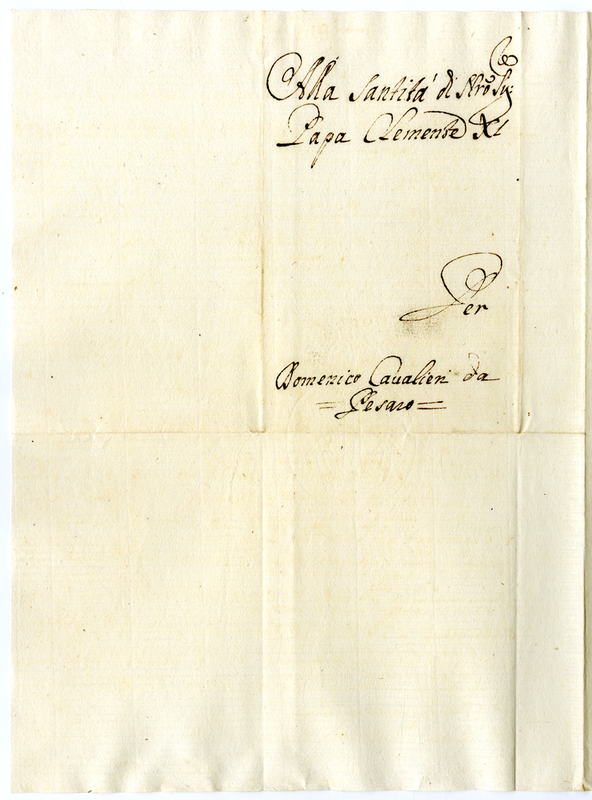 Alla Santità di Nro Sig:re
Papa Clemente XI
Per
Domenico Caualieri da
= Pesaro =